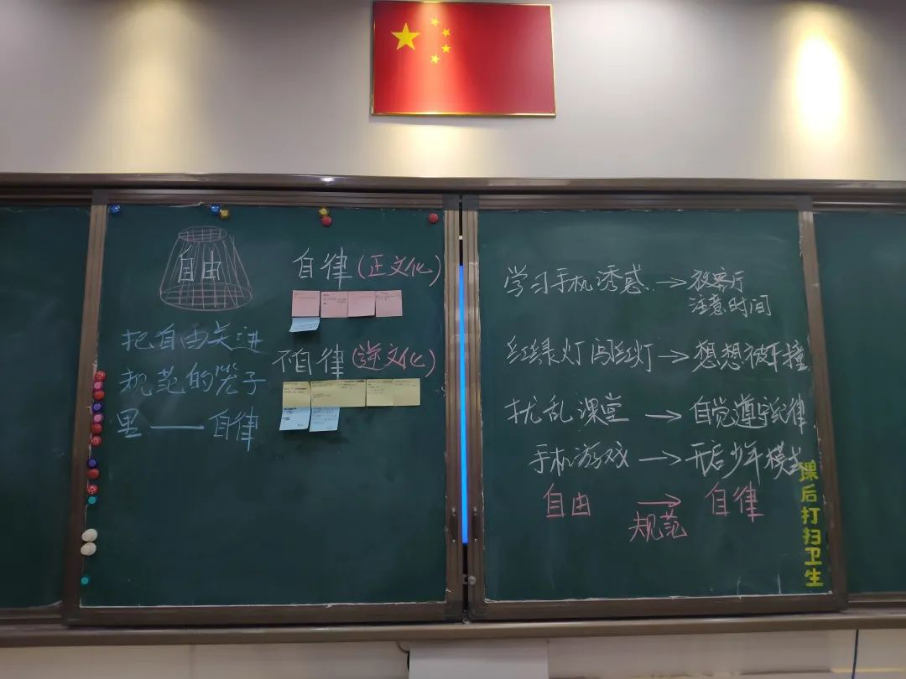 自由
把自由关进
规范的笼子
里——自律
自律(正文化)
不自律(逆文化)
学习手机诱惑→放客厅
注意时间
红绿灯闯红灯→想想被车撞
扰乱课堂→自觉遵守纪律
手机游戏→开启少年模式
自由→自律
规范
课后打扫卫生